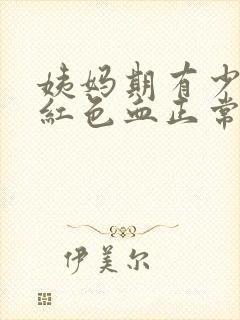 姨妈期有少
红色血正常
伊美尔